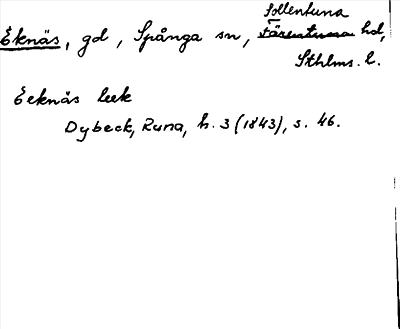 Sollentuna
Eknäs, gd, Spånga sn, Färentuna hd,
Sthlms. l.
Eeknäs leek
Dybeck, Runa, h. 3 (1843), s. 46.